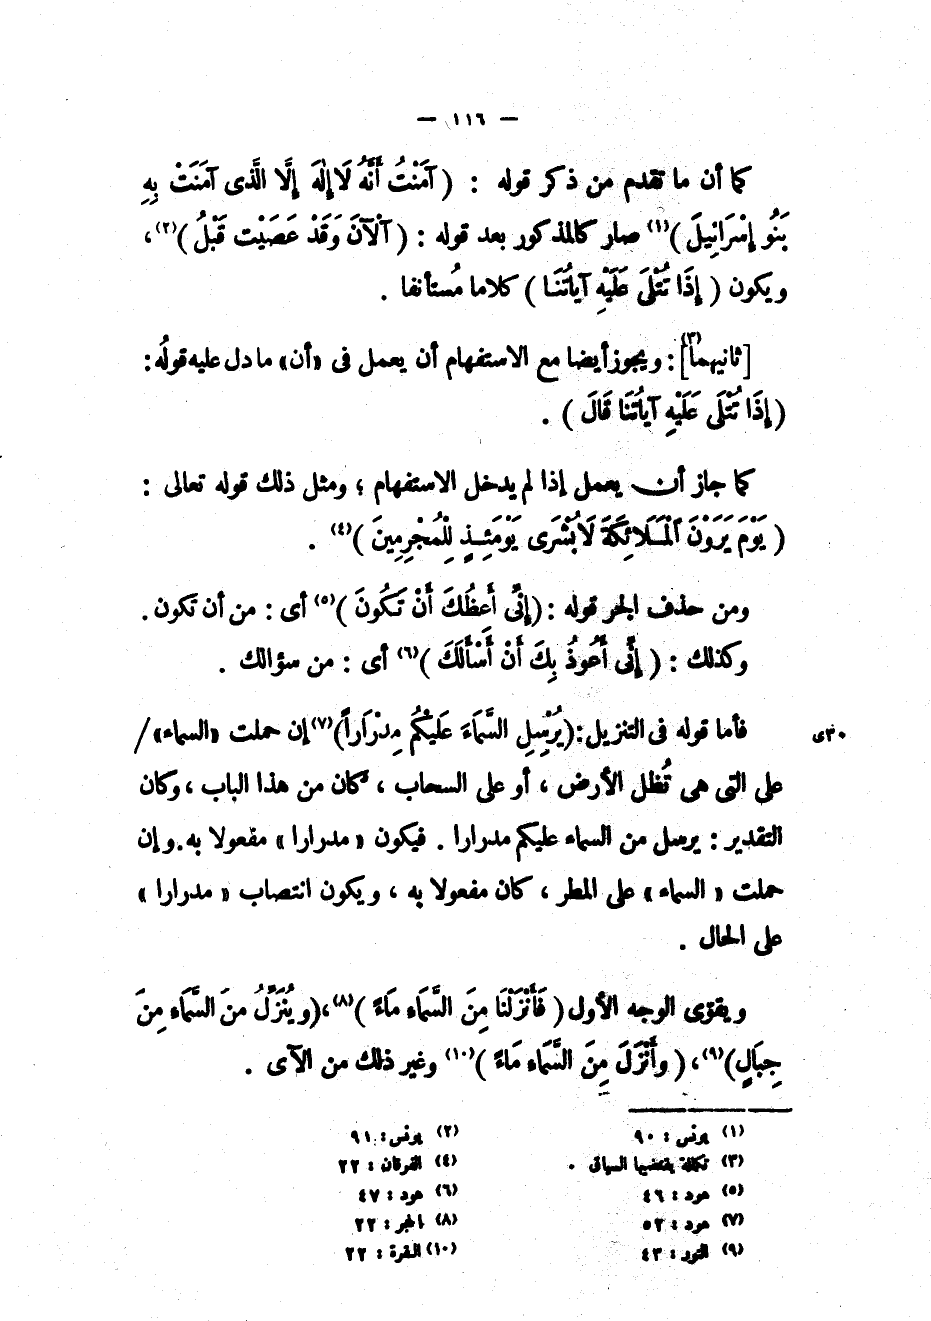 — ١١٦ —
كما أن ما تقدم من ذكر قوله : ( آمَنْتُ أَنَّهُ لَا إِلٰهَ إِلَّا الَّذِى آمَنَتْ بِهِ
بَنُو إِسْرَائِيلَ )(١) صار كالمذكور بعد قوله : ( آلْآنَ وَقَدْ عَصَيْت قَبْلُ )(٢) ،
ويكون ( إِذَا تُتْلَى عَلَيْهِ آيَاتُنَا ) كلاما مُستأنفا .
[ثانيهما](٣) : ويجوز أيضا مع الاستفهام أن يعمل فى «أن» ما دل عليه قولُه :
( إِذَا تُتْلَى عَلَيْهِ آيَاتُنَا قَالَ ) .
كما جاز أن يعمل إذا لم يدخل الاستفهام ؛ ومثل ذلك قوله تعالى :
( يَوْمَ يَرَوْنَ الْمَلَائِكَةَ لَا بُشْرَى يَوْمَئِذٍ لِلْمُجْرِمِينَ )(٤) .
ومن حذف الجر قوله : ( إِنِّى أَعِظُكَ أَنْ تَكُونَ )(٥) أى : من أن تكون .
وكذلك : ( إِنِّى أَعُوذُ بِكَ أَنْ أَسْأَلَكَ )(٦) أى : من سؤالك .
فأما قوله فى التنزيل : ( يُرْسِلِ السَّمَاءَ عَلَيْكُمْ مِدْرَاراً )(٧) إن حملت «السماء» / ٣٠ى
على التى هى تُظل الأرض ، أو على السحاب ، كان من هذا الباب ، وكان
التقدير : يرسل من السماء عليكم مدرارا . فيكون « مدرارا » مفعولا به . وإن
حملت « السماء » على المطر ، كان مفعولا به ، ويكون انتصاب « مدرارا »
على الحال .
ويقوّى الوجه الأول ( فَأَنْزَلْنَا مِنَ السَّمَاءِ مَاءً )(٨) ، ( ويُنَزِّلُ مِنَ السَّمَاءِ مِنَ
جِبَالٍ )(٩) ، ( وأَنْزَلَ مِنَ السَّمَاءِ مَاءً )(١٠) وغير ذلك من الآى .
(١) يونس : ٩٠ (٢) يونس : ٩١
(٣) تكملة يقتضيها السياق . (٤) الفرقان : ٢٢
(٥) هود : ٤٦ (٦) هود : ٤٧
(٧) هود : ٥٢ (٨) الحجر : ٢٢
(٩) النور : ٤٣ (١٠) البقرة : ٢٢